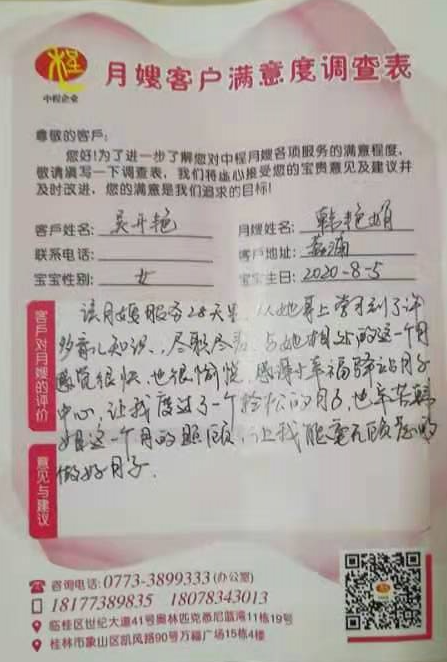 中程企业
月嫂客户满意度调查表
尊敬的客户:
您好!为了进一步了解您对中程月嫂各项服务的满意程度,
敬请填写一下调查表,我们将虚心接受您的宝贵意见及建议并
及时改进,您的满意是我们追求的目标!
客户姓名: 吴开艳
月嫂姓名: 韩艳娟
联系电话:
客户地址:
宝宝性别: 女
宝宝生日: 2020-8-5
客户对月嫂的评价
该月嫂服务28天里,从她身上学习到了许
多育儿知识,尽职尽责,与她相处的这一个月
感觉很快,也很愉悦,感谢幸福驿站月子
中心,让我度过了一个轻松的月子,也辛苦韩
姐这一个月的照顾,让我能毫无顾忌的
做好月子.
意见与建议
咨询电话:0773-3899333(办公室)
18177389835 18078343013
临桂区世纪大道41号奥林匹克悉尼蓝湾11栋19号
桂林市象山区凯风路90号万福广场15栋4楼